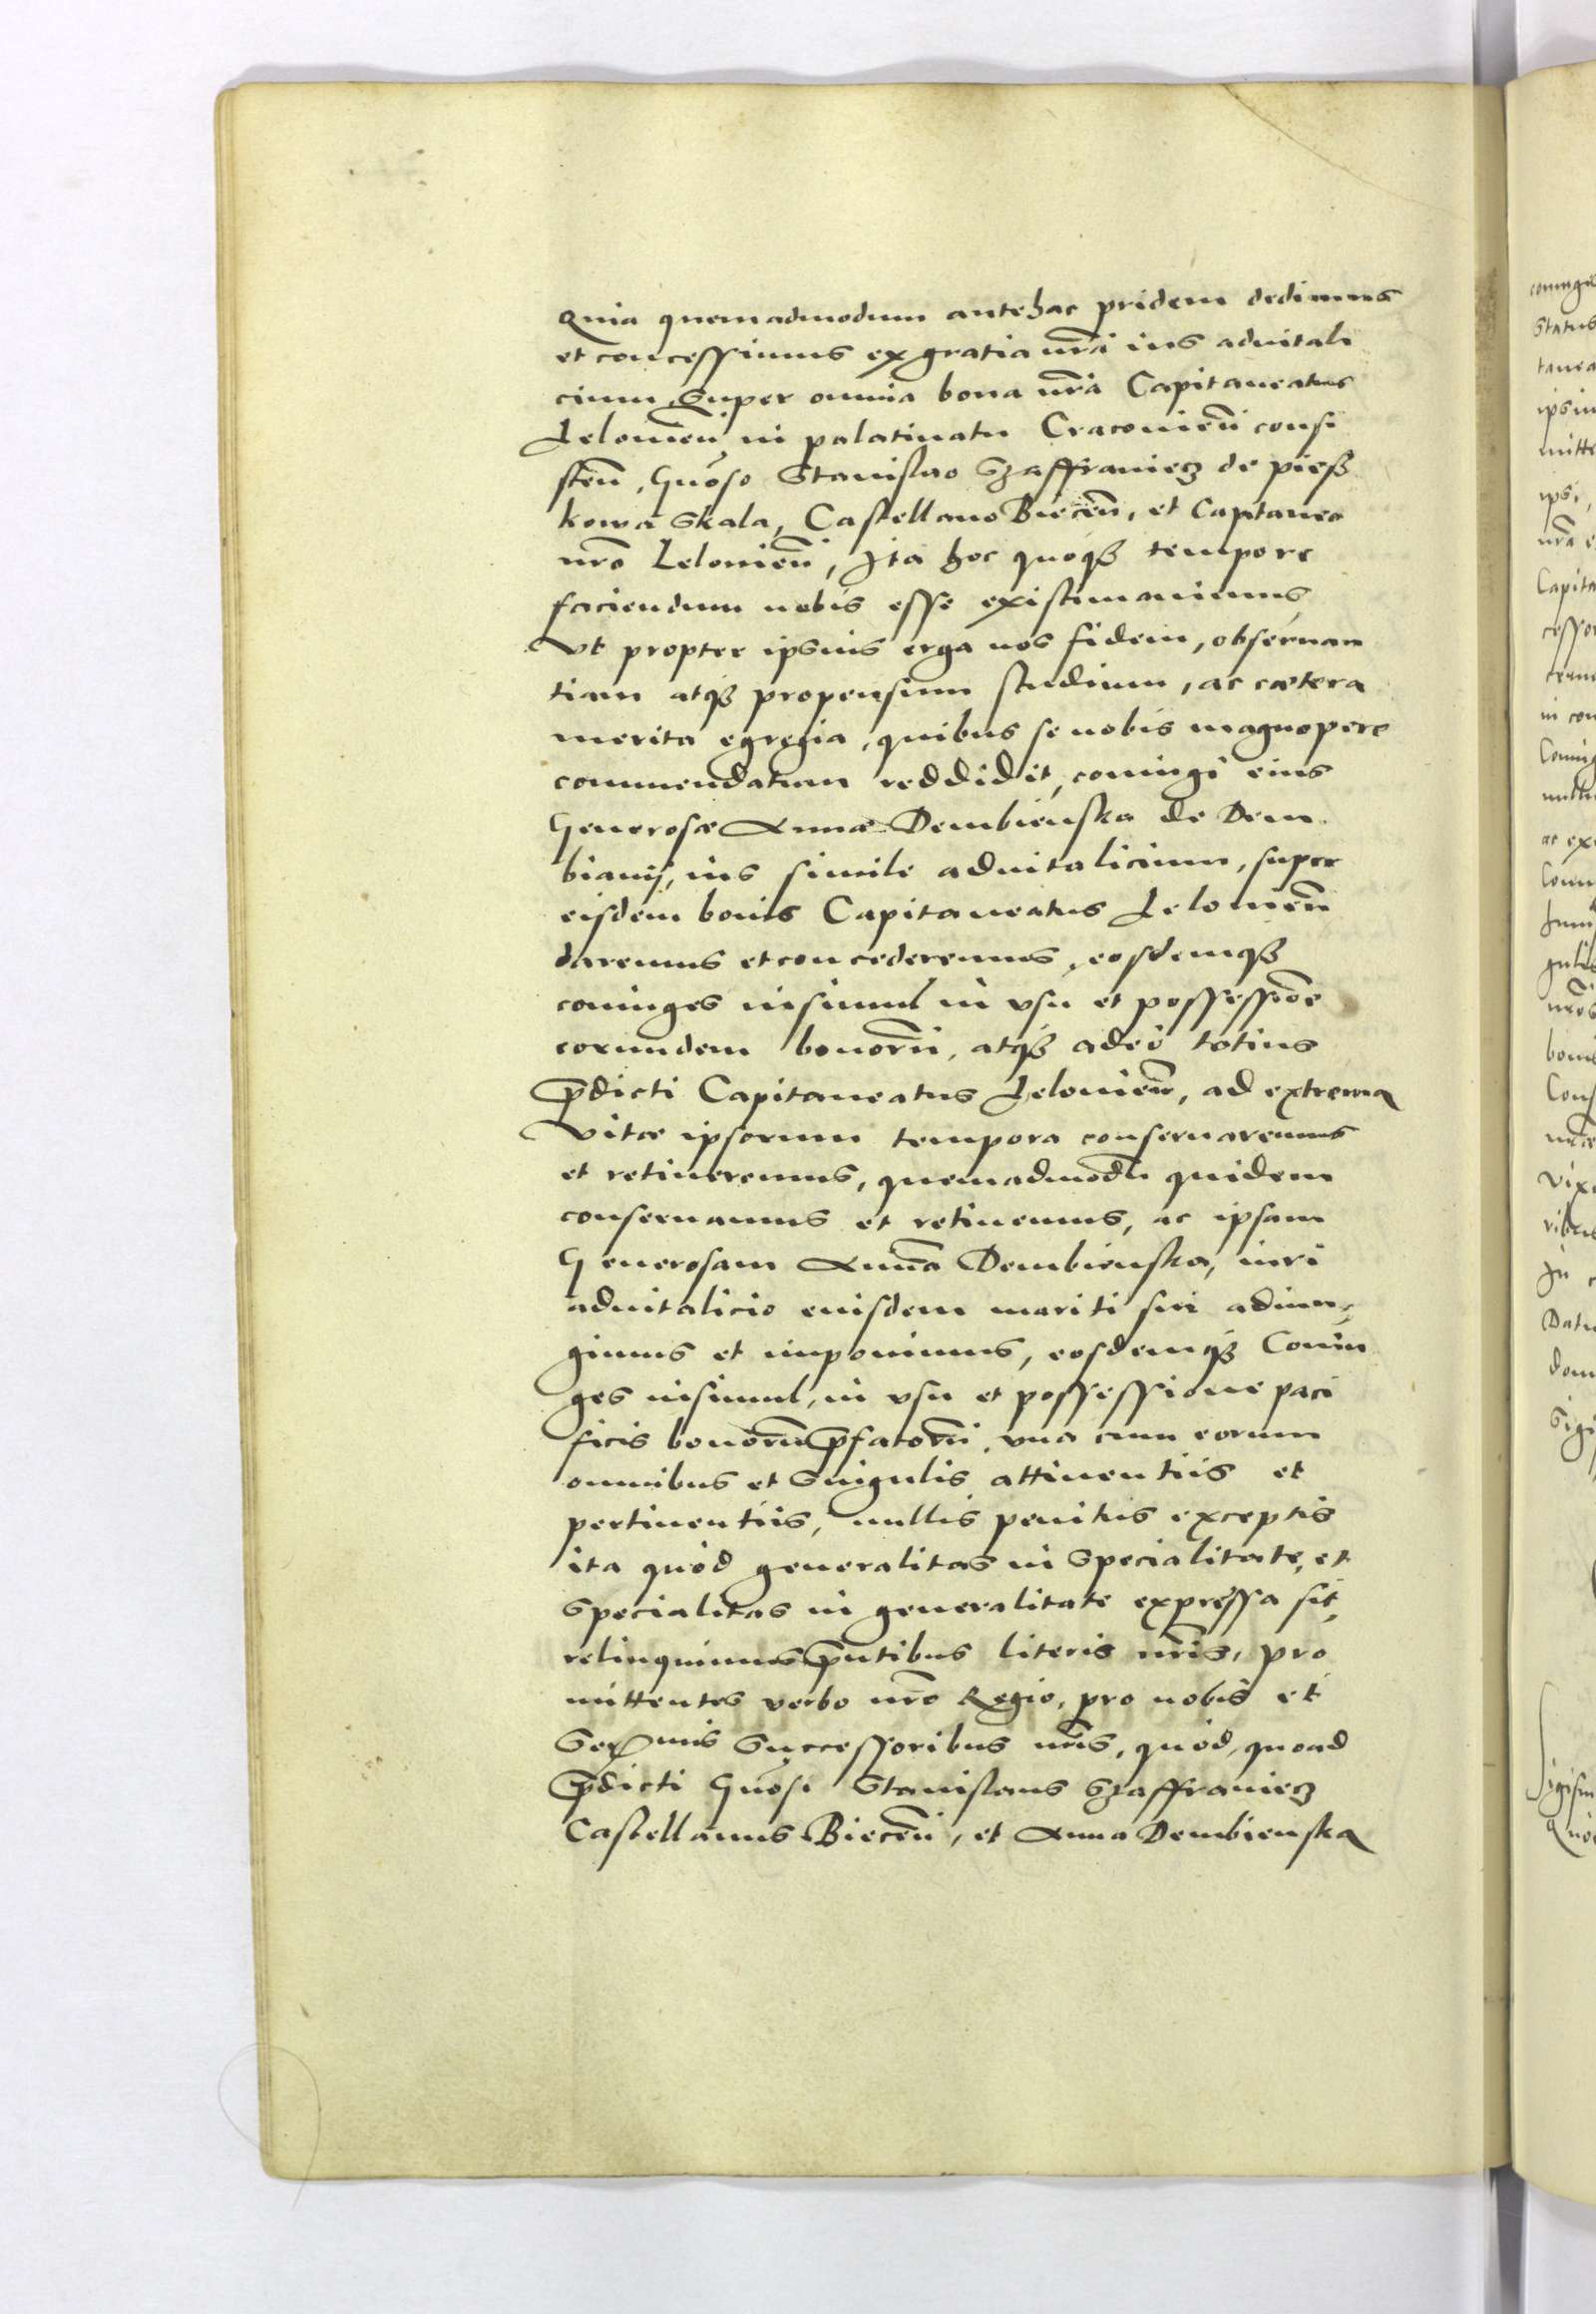 Quia quemadmodum antehac pridem dedimus
et concessimus ex gratia nrã ius aduitali
cium super omnia bona nrã Capitaneatus
Lelovieñ in palatinatu Cracovieñ consi
steñ, Gnõso Stanislao Szaffraniecz de pieß
kowa Skala, Castellano Bieceñ, et Capitaneo
nrõ Lelovieñ, Ita hoc quoqß tempore
faciendum nobis esse existimauimus
Vt propter ipsius erga nos fidem, obseruan
tiam atqß propensum studium, ac cætera
merita egregia, quibus se nobis magnopere
commendatum reddidit, coniugi eius
Generosæ Annæ Dembienska de Dem
bianÿ, ius simile aduitalicium, super
eisdem bonis Capitaneatus Lelovieñ
daremus et concederemus, eosdemqß
coniuges insimul in vsu et possessiõe
eorundem bonorũ, atqß adeò totius
p̃dicti Capitaneatus Lelovieñ, ad extrema
Vitæ ipsorum tempora conseruaremus
et retineremus, quemadmodũ quidem
conseruamus et retinemus, ac ipsam
Generosam Annã Dembienska, iuri
aduitalicio eiusdem mariti sui adiun,
gimus et imponimus, eosdemqß Coniu
ges insimul, in vsu et possessione paci
ficis bonorũ p̃fatorũ, vna cum eorum
omnibus et Singulis attinentiis et
pertinentiis, nullis penitus exceptis
ita quòd generalitas in Specialitate, et
Specialitas in generalitate expressa sit,
relinquimus p̃ntibus literis nrĩs, pro
mittentes verbo nrõ Regio, pro nobis et
Serᵐⁱˢ Successoribus nrĩs, quòd, quoad
p̃dicti Gnõsi Stanislaus Szaffraniecz
Castellanus Bieceñ, et Anna Dembienska